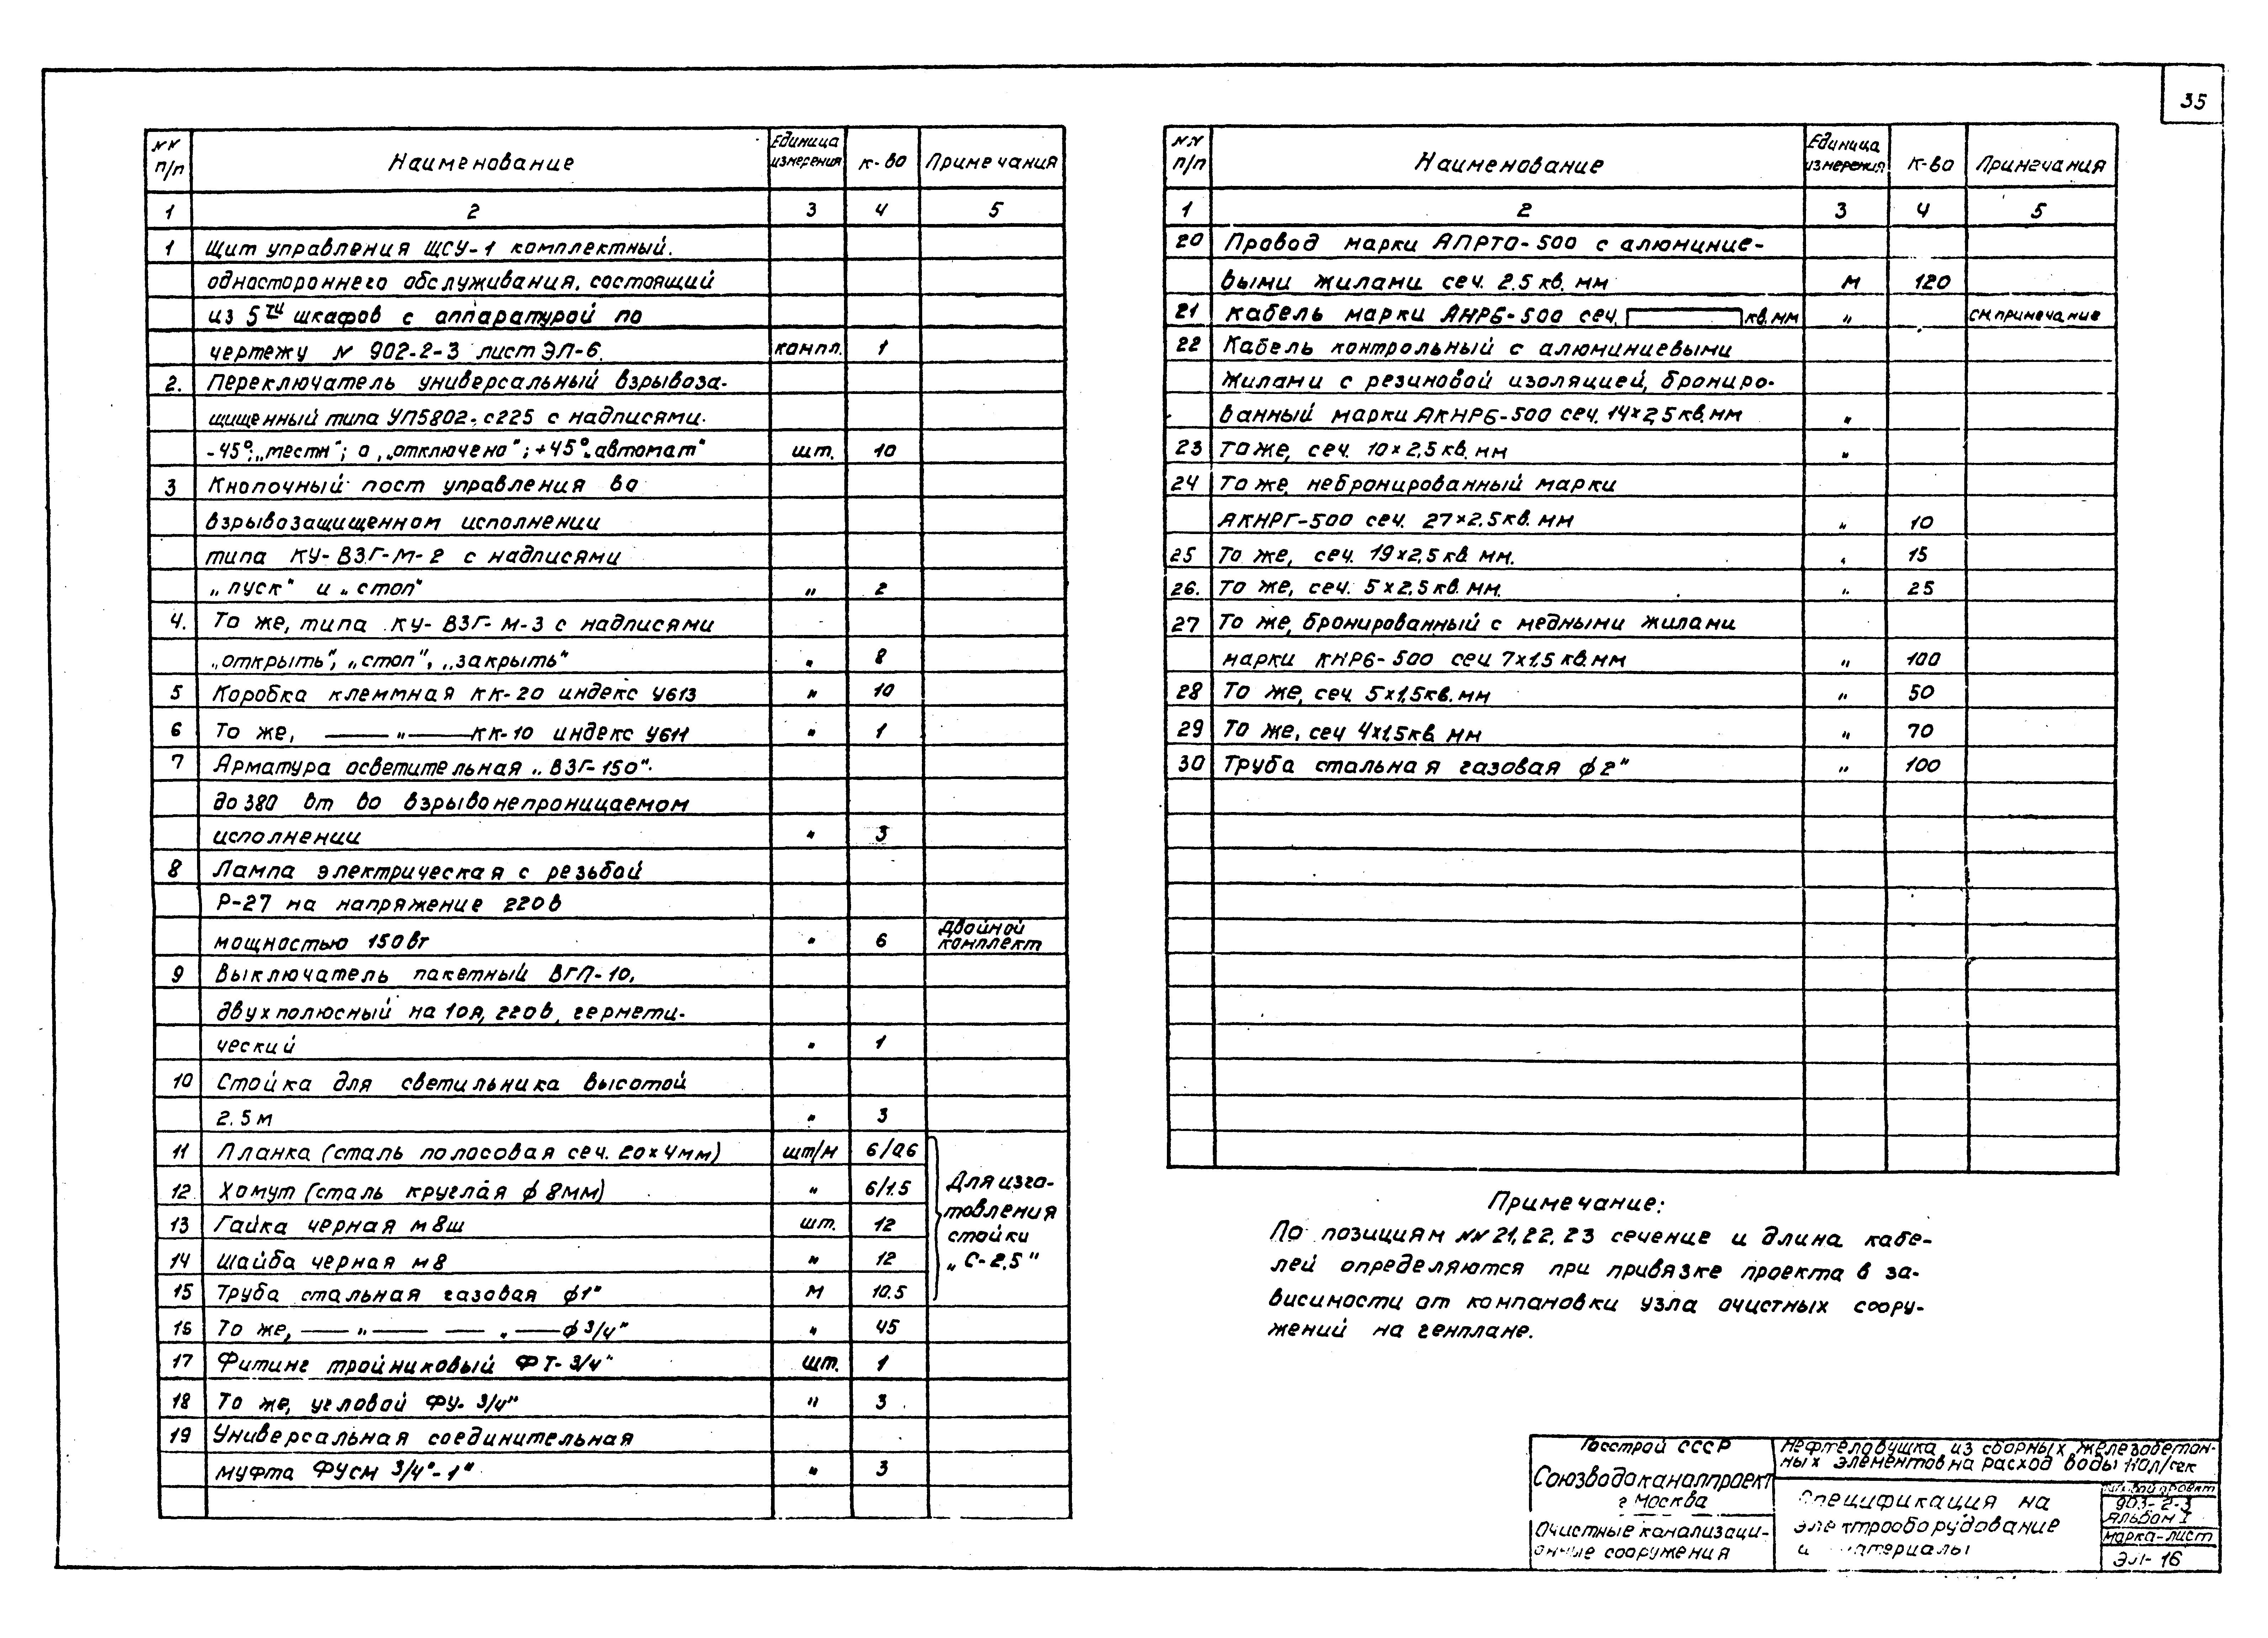 35
№№ п/п Наименование Единица измерения к-во Примечания
1 2 3 4 5
1 Щит управления ЩСУ-1 комплектный.
одностороннего обслуживания, состоящий
из 5ти шкафов с аппаратурой по
чертежу № 902-2-3 лист ЭЛ-6. компл. 1
2. Переключатель универсальный взрывоза-
щищенный типа УП5802-с225 с надписями.
-45° „местн"; 0 „отключено"; +45° „автомат" шт. 10
3 Кнопочный пост управления во
взрывозащищенном исполнении
типа КУ-ВЗГ-М-2 с надписями
„пуск" и „стоп" „ 2
4. То же, типа КУ-ВЗГ-М-3 с надписями
„открыть", „стоп", „закрыть" „ 8
5 Коробка клеммная КК-20 индекс У613 „ 10
6 То же, — „ — КК-10 индекс У611 „ 1
7 Арматура осветительная „ВЗГ-150".
до 380 вт во взрывонепроницаемом
исполнении „ 3
8 Лампа электрическая с резьбой
Р-27 на напряжение 220в
мощностью 150вт „ 6 Двойной комплект
9 Выключатель пакетный ВГП-10,
двухполюсный на 10а, 220в, гермети-
ческий „ 1
10 Стойка для светильника высотой
2.5м „ 3
11 Планка (сталь полосовая сеч. 20×4мм) шт/м 6/0.6
12 Хомут (сталь круглая ф 8мм) „ 6/1.5
13 Гайка черная м8ш шт. 12
14 Шайба черная м8 „ 12
15 Труба стальная газовая ф1" м 10.5
Для изго-
товления
стойки
„С-2,5"
16 То же, — „ — — „ — ф 3/4" „ 45
17 Фитинг тройниковый ФТ-3/4" шт. 1
18 То же, угловой ФУ-3/4" „ 3
19 Универсальная соединительная
муфта ФУСМ 3/4"-1" „ 3
№№ п/п Наименование Единица измерения к-во Примечания
1 2 3 4 5
20 Провод марки АПРТО-500 с алюминие-
выми жилами сеч. 2.5 кв. мм м 120
21 кабель марки АНРБ-500 сеч. кв. мм „ см. примечание
22 Кабель контрольный с алюминиевыми
жилами с резиновой изоляцией, брониро-
ванный марки АКНРБ-500 сеч. 14×2,5 кв. мм „
23 То же, сеч. 10×2,5 кв. мм „
24 То же, небронированный марки
АКНРГ-500 сеч. 27×2.5кв. мм „ 10
25 То же, сеч. 19×2,5 кв мм. „ 15
26. То же, сеч. 5×2,5 кв. мм. „ 25
27 То же, бронированный с медными жилами
марки КНРБ-500 сеч 7×1.5 кв. мм „ 100
28 То же, сеч. 5×1,5кв. мм „ 50
29 То же, сеч 4×1,5кв мм „ 70
30 Труба стальная газовая ф2" „ 100
Примечание:
По позициям №№ 21, 22, 23 сечение и длина кабе-
лей определяются при привязке проекта в за-
висимости от компановки узла очистных соору-
жений на генплане.
Госстрой СССР
Союзводоканалпроект
г Москва
Очистные канализаци-
онные сооружения
Нефтеловушка из сборных железобетон-
ных элементов на расход воды 110л/сек
Спецификация на
электрооборудование
и материалы
Типовой проект
903-2-3
Альбом I
марка-лист
ЭЛ-16